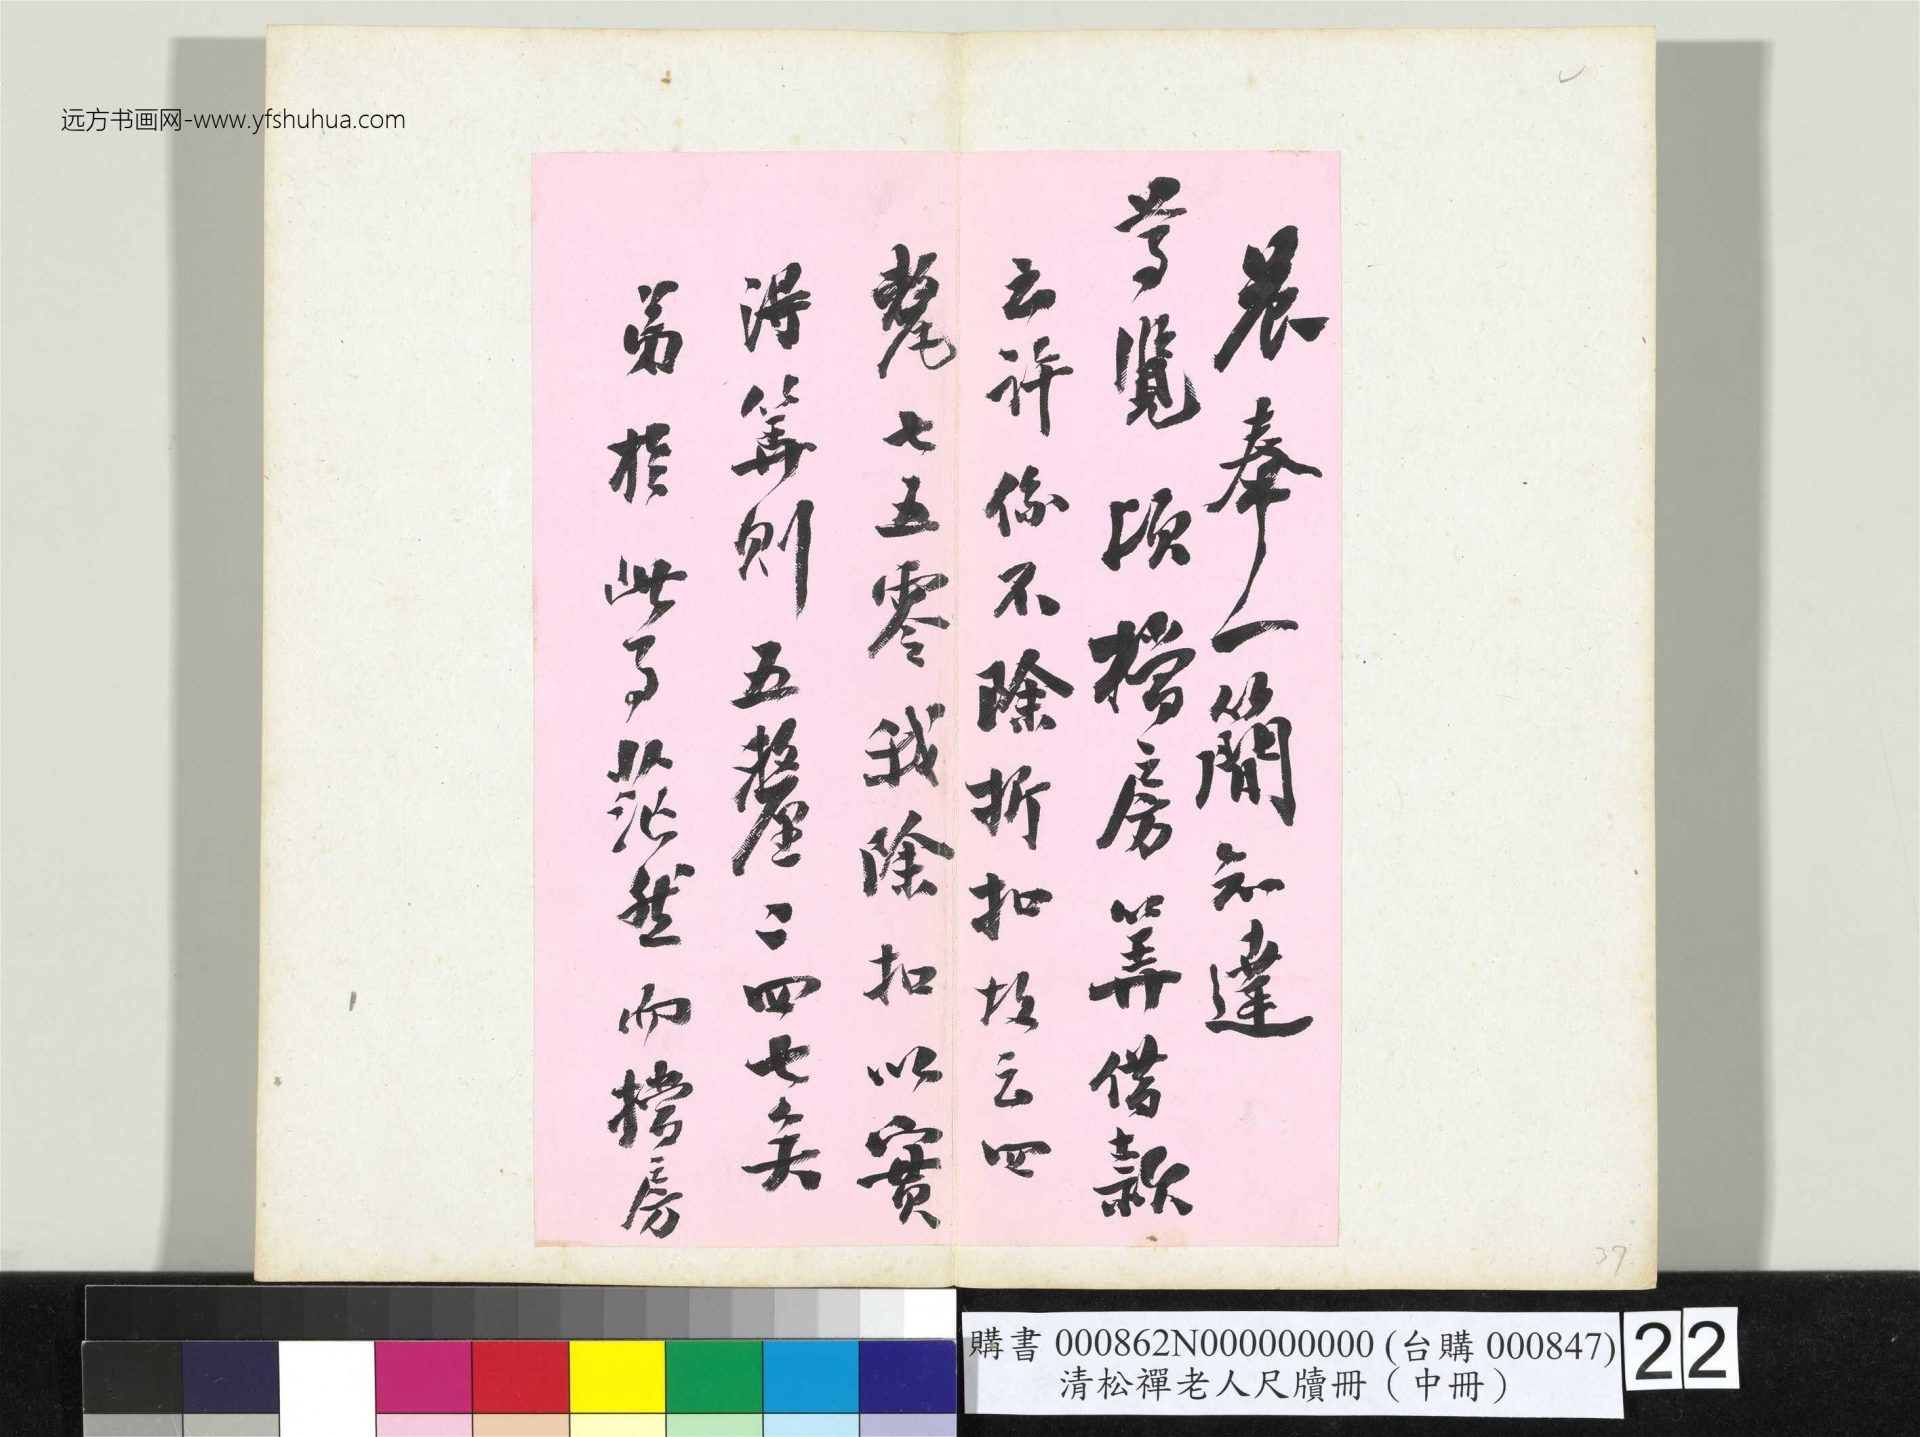 远方书画网-www.yfshuhua.com
晨奉一簡知達
等覽頃檔房算借款
云許係不除折扣故云四
氂七五零我除扣以實
得算則五釐二四七矣
弟於此事茫然而檔房
37
購書 000862N000000000 (台購 000847)
清松禪老人尺牘冊（中冊）
22